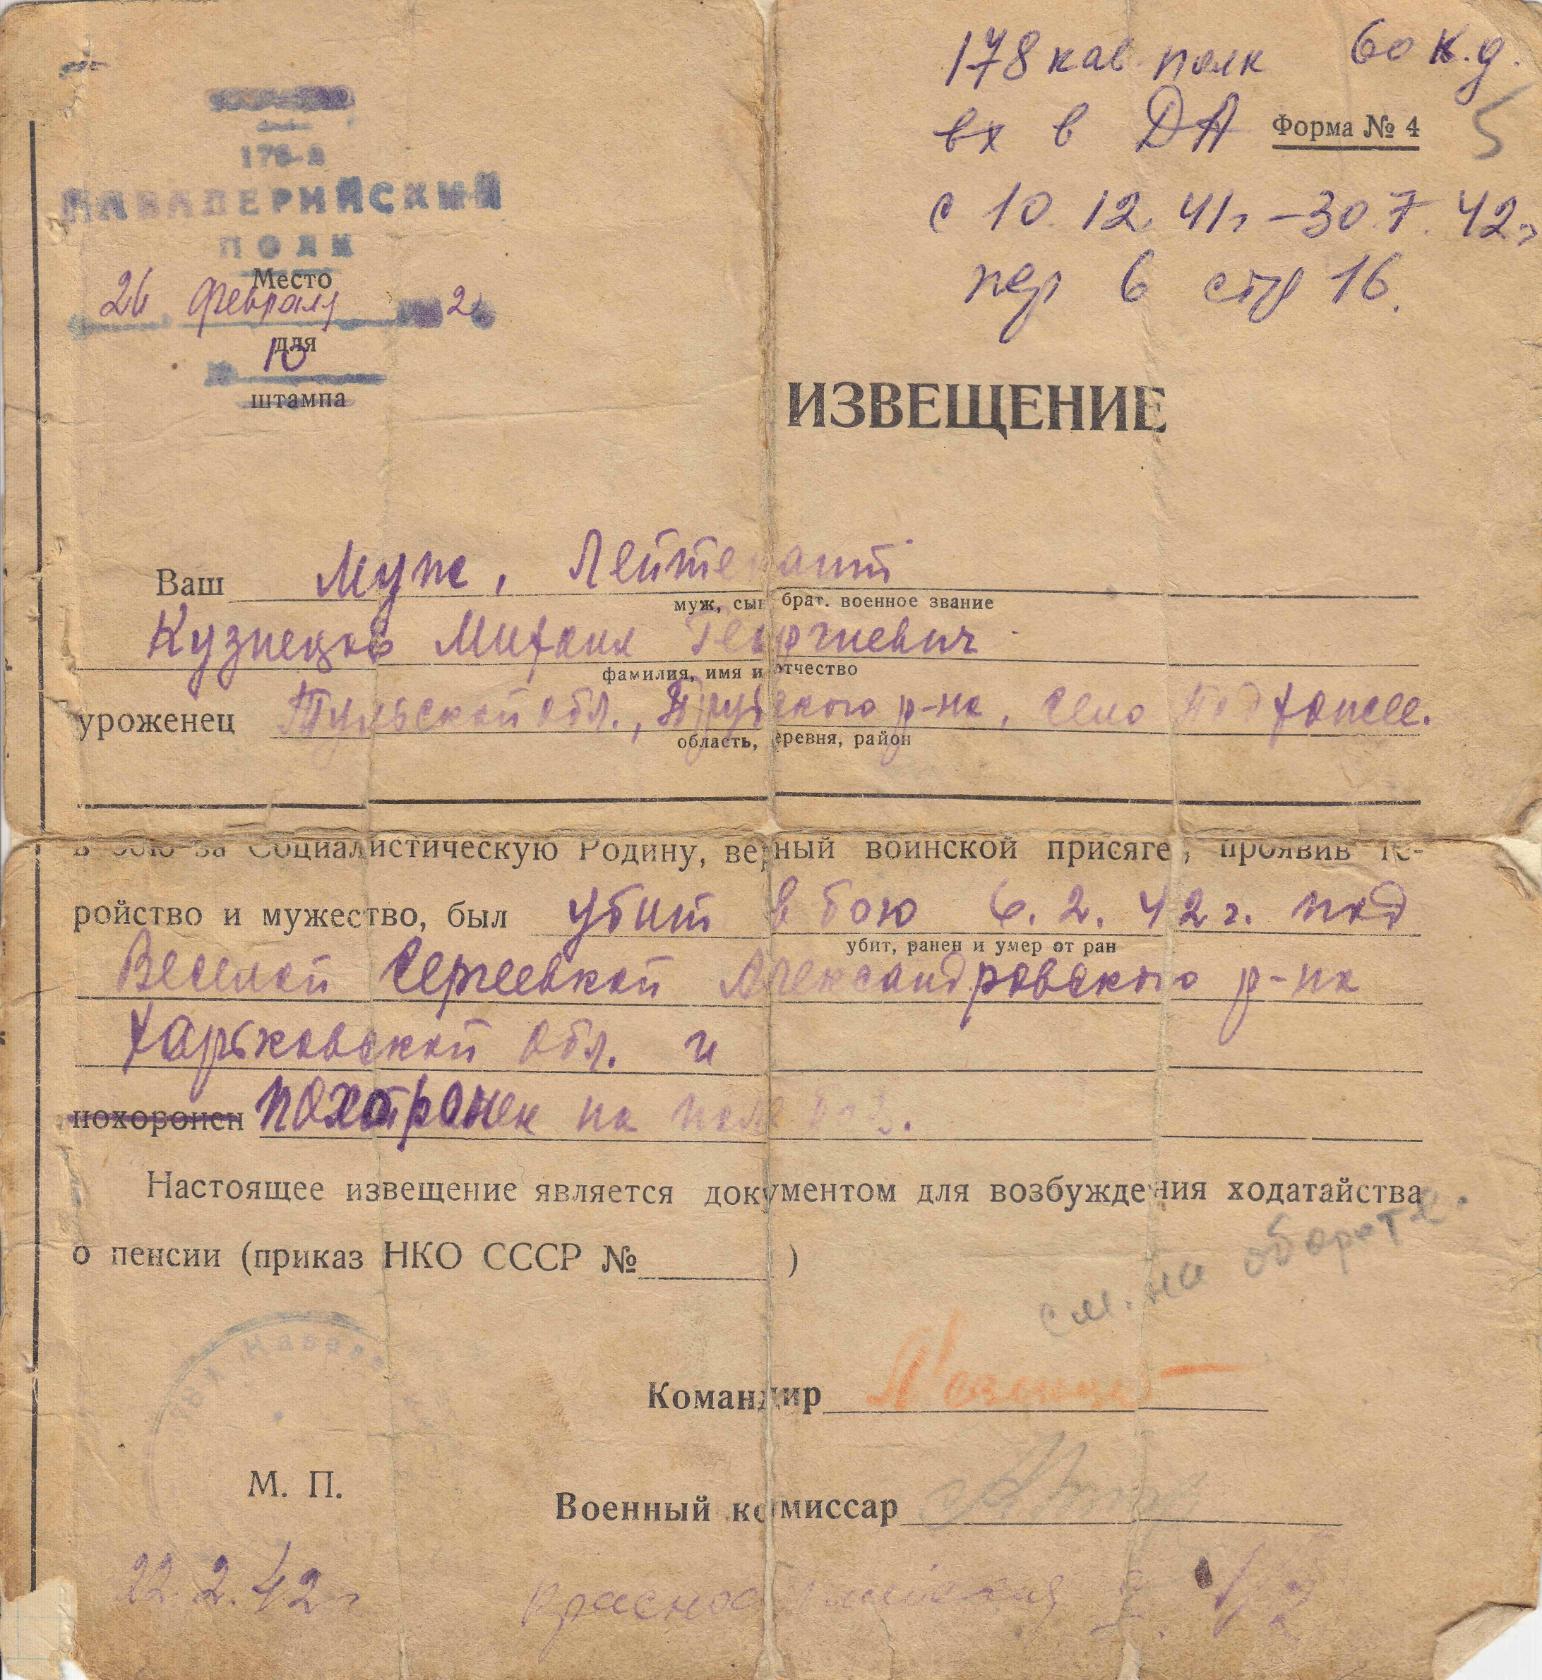 178 кав. полк 60 к.д.
вх в ДА Форма № 4 5
с 10.12.41г – 30.7.42г
пер 6 стр 16.
178-й
КАВАЛЕРИЙСКИЙ
ПОЛК
Место
26 февраля 2
для
10
штампа
ИЗВЕЩЕНИЕ
Ваш муж, Лейтенант
муж, сын брат. военное звание
Кузнецов Михаил Георгиевич
фамилия, имя и отчество
уроженец Тульской обл., р-на, село
область, деревня, район
в бою за Социалистическую Родину, верный воинской присяге, проявив ге-
ройство и мужество, был убит в бою 6.2.42г. под
убит, ранен и умер от ран
Веселой Сергеевкой Александровского р-на
Харьковской обл. и
похоронен похоронен на поле
Настоящее извещение является документом для возбуждения ходатайства
о пенсии (приказ НКО СССР № )
см. на обороте.
Командир
М. П.
Военный комиссар
22.2.42г